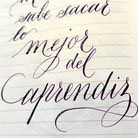 sabe sacar
lo mejor
del
aprendiz